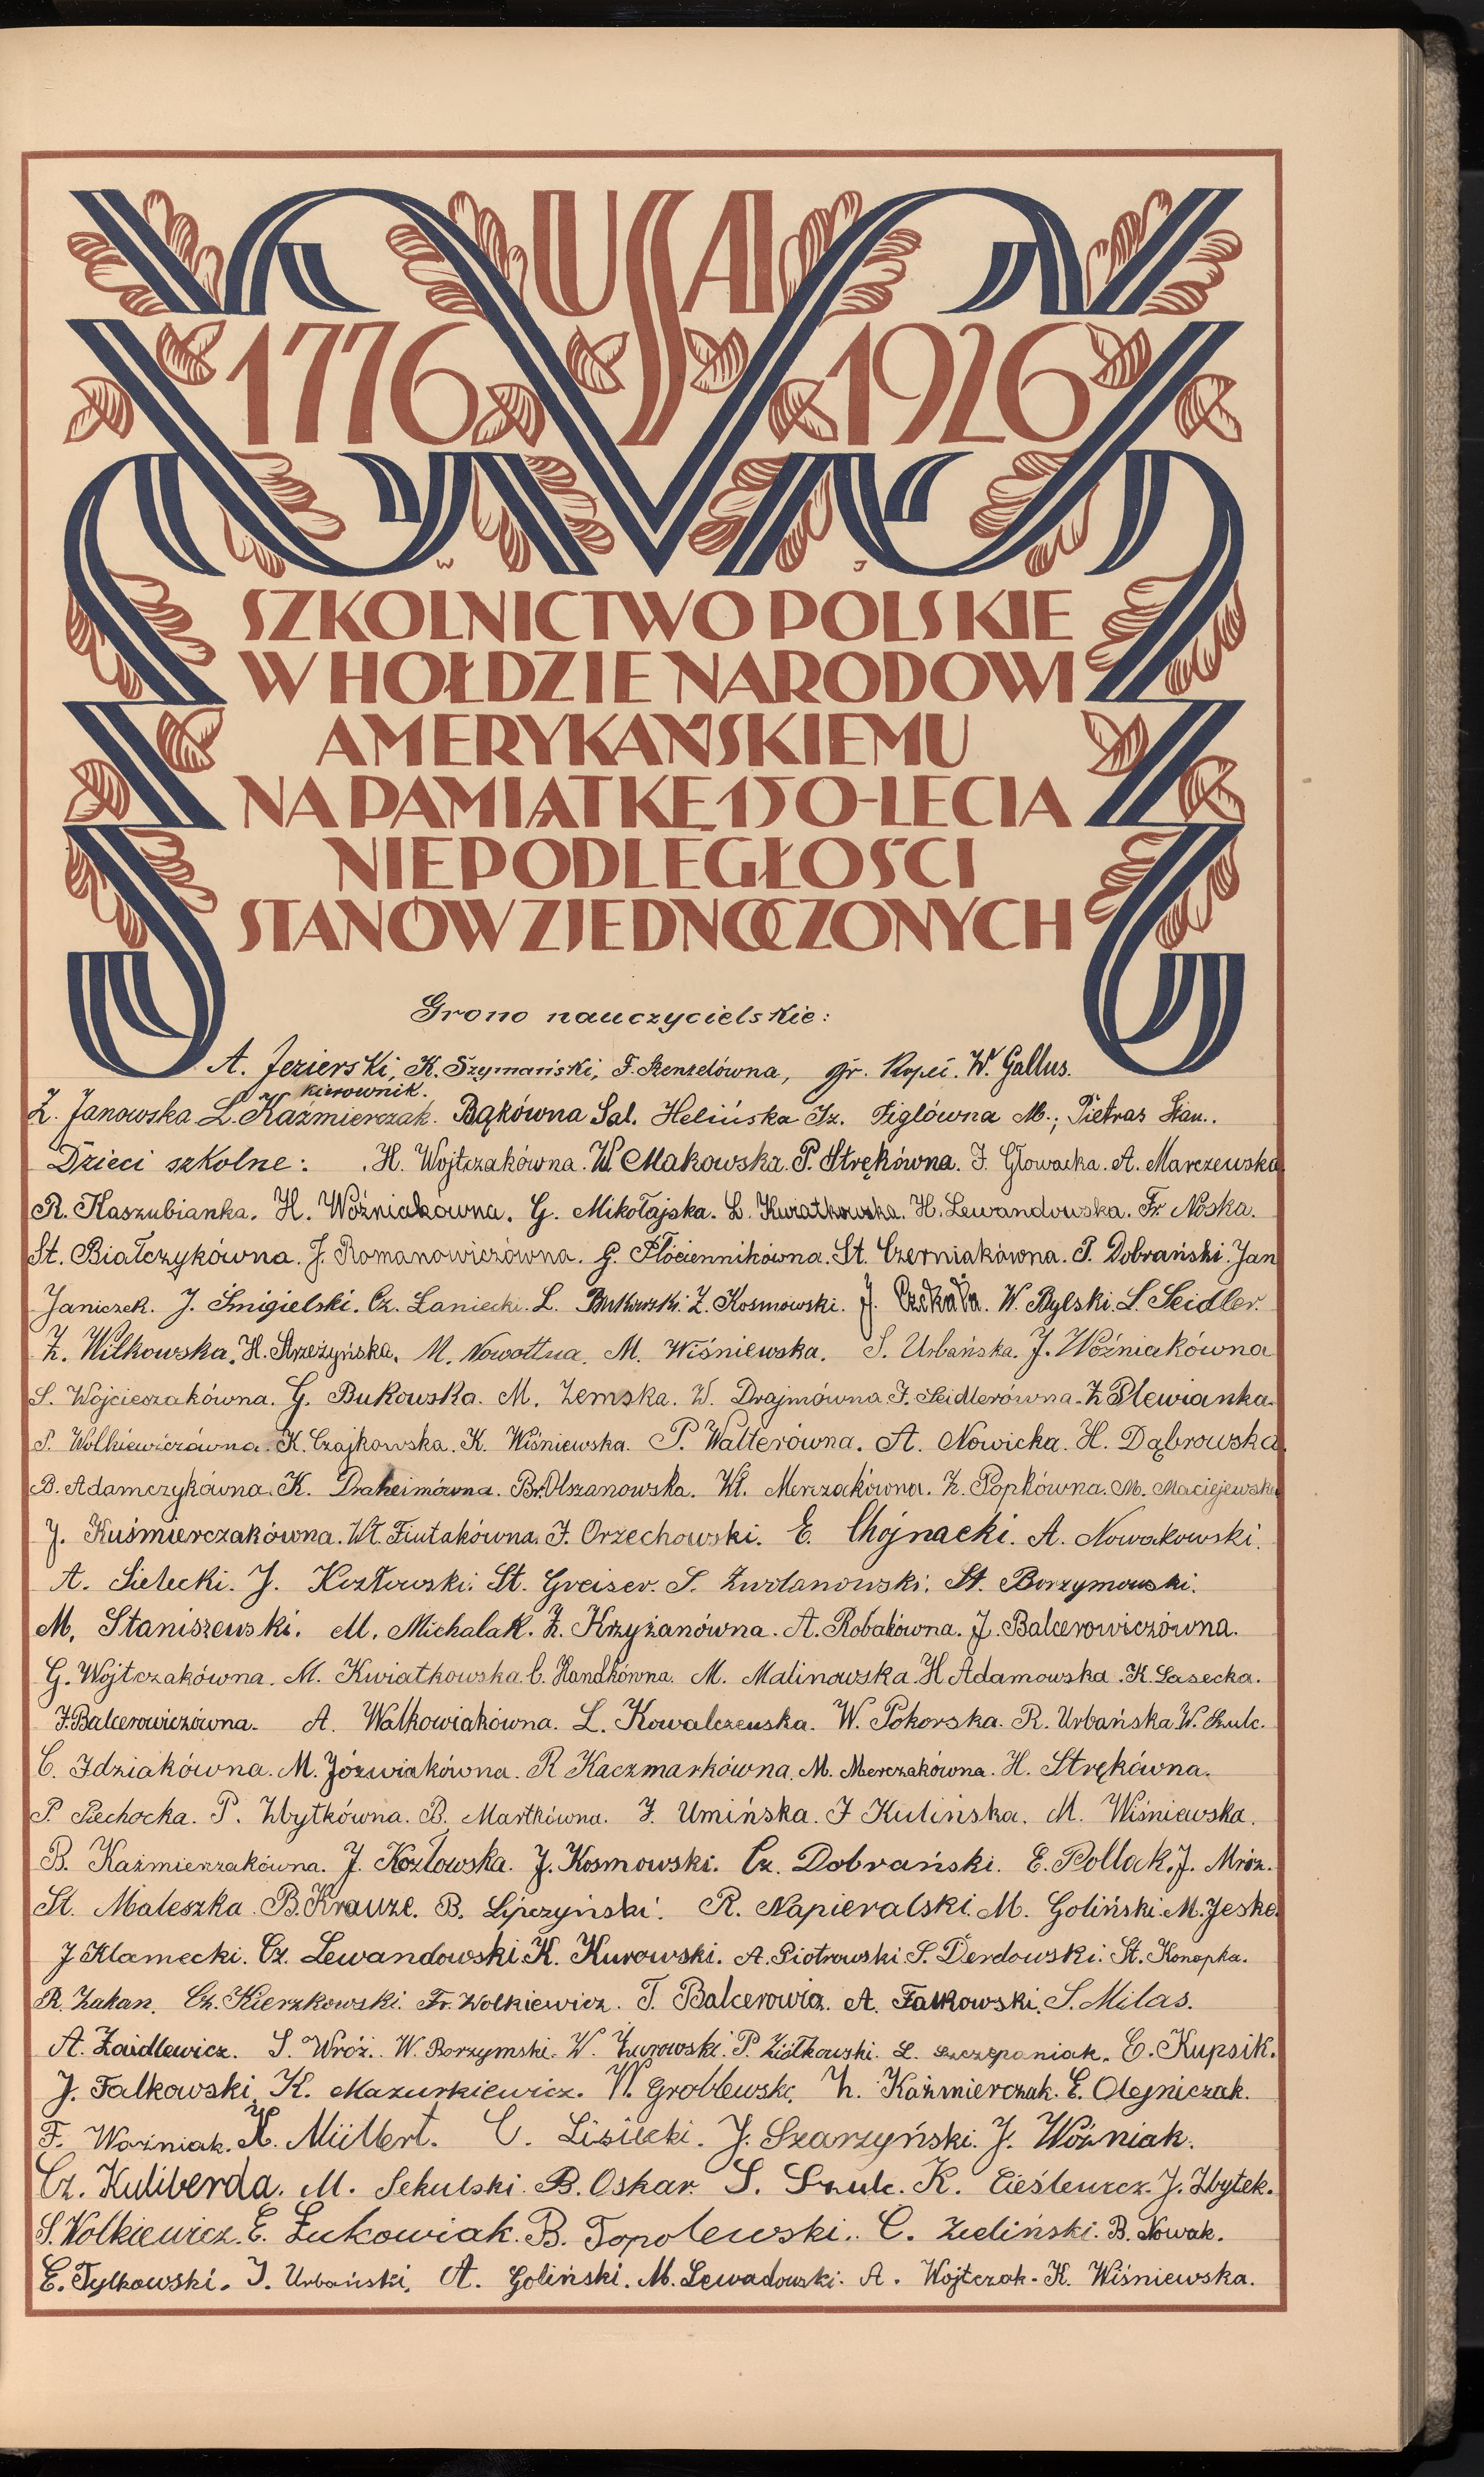 USA
1776 1926
W J
SZKOLNICTWO POLSKIE
W HOŁDZIE NARODOWI
AMERYKAŃSKIEMU
NA PAMIĄTKĘ 150-LECIA
NIEPODLEGŁOŚCI
STANÓW ZJEDNOCZONYCH
Grono nauczycielskie:
A. Jezierski, K. Szymański, F. Stenzelówna, Gr. Kopeć. W. Gallus.
kierownik.
Z. Janowska L. Kaźmierczak. Bąkówna Sal. Helińska Iz. Figlówna M., Pietras Stan..
Dzieci szkolne: H. Wojtczakówna. W. Makowska. P. Strękówna. J. Głowacka. A. Marczewska
R. Kaszubianka. H. Woźniakówna. G. Mikołajska. L. Kwiatkowska. H. Lewandowska. Fr. Noska.
St. Białczykówna. J. Romanowiczówna. G. Płóciennikówna. St. Czerniakówna. T. Dobrański. Jan
Janiczek. J. Śmigielski. Cz. Łaniecki. L. Butkowski. Z. Kosmowski. J. Czekała. W. Bylski. L. Seidler.
Z. Wilkowska. H. Strzeżyńska. M. Nowottna. M. Wiśniewska. S. Urbańska. J. Woźniakówna
S. Wojcieszakówna. G. Bukowska. M. Zemska. W. Drajmówna J. Seidlerówna. Z. Plewianka.
P. Wolkiewiczówna. K. Czajkowska. K. Wiśniewska. P. Walterówna. A. Nowicka. H. Dąbrowska.
B. Adamczykówna. K. Draheimówna. Br. Olszanowska. Wł. Merczakówna. Z. Popkówna. M. Maciejewska
J. Kuśmierczakówna. Wł. Fiutakówna. J. Orzechowski. E. Chojnacki. A. Nowakowski.
A. Sielecki. J. Kozłowski. St. Greiser. S. Żurdanowski. St. Borzymowski.
M. Staniszewski. M. Michalak. Z. Krzyżanówna. A. Robakówna. J. Balcerowiczówna.
G. Wojtczakówna. M. Kwiatkowska. C. Handkówna. M. Malinowska. H. Adamowska. K. Lasecka.
J. Balcerowiczówna. A. Walkowiakówna. L. Kowalczewska. W. Pokorska. R. Urbańska. W. Szulc.
C. Idziakówna. M. Józwiakówna. R. Kaczmarkówna. M. Merczakówna. H. Strękówna.
P. Piechocka. P. Zbytkówna. B. Martkówna. J. Umińska. J. Kulińska. M. Wiśniewska.
B. Kaźmierzakówna. J. Kozłowska. J. Kosmowski. Cz. Dobrański. E. Pollak. J. Mróz.
St. Maleszka. B. Krauze. B. Lipczyński. R. Napieralski. M. Goliński. M. Jeske.
J. Klamecki. Cz. Lewandowski. K. Kurowski. A. Piotrowski. S. Derdowski. St. Konopka.
R. Zakan. Cz. Kierzkowski. Fr. Wolkiewicz. T. Balcerowicz. A. Falkowski. S. Milas.
A. Zaidlewicz. S. Wróż. W. Borzymski. W. Żurowski. P. Ziółkowski. L. Szczepaniak. C. Kupsik.
J. Falkowski. K. Mazurkiewicz. W. Groblewski. Z. Kaźmierczak. E. Olejniczak.
F. Woźniak. K. Müllert. C. Lisiecki. J. Szarzyński. J. Woźniak.
Cz. Kuliberda. M. Sekulski. B. Oskar. S. Szulc. K. Cieślewicz. J. Zbytek.
S. Wolkiewicz. E. Łukowiak. B. Topolewski. C. Zieliński. B. Nowak.
E. Tylkowski. J. Urbański. A. Goliński. M. Lewadowski. A. Wojtczak. K. Wiśniewska.